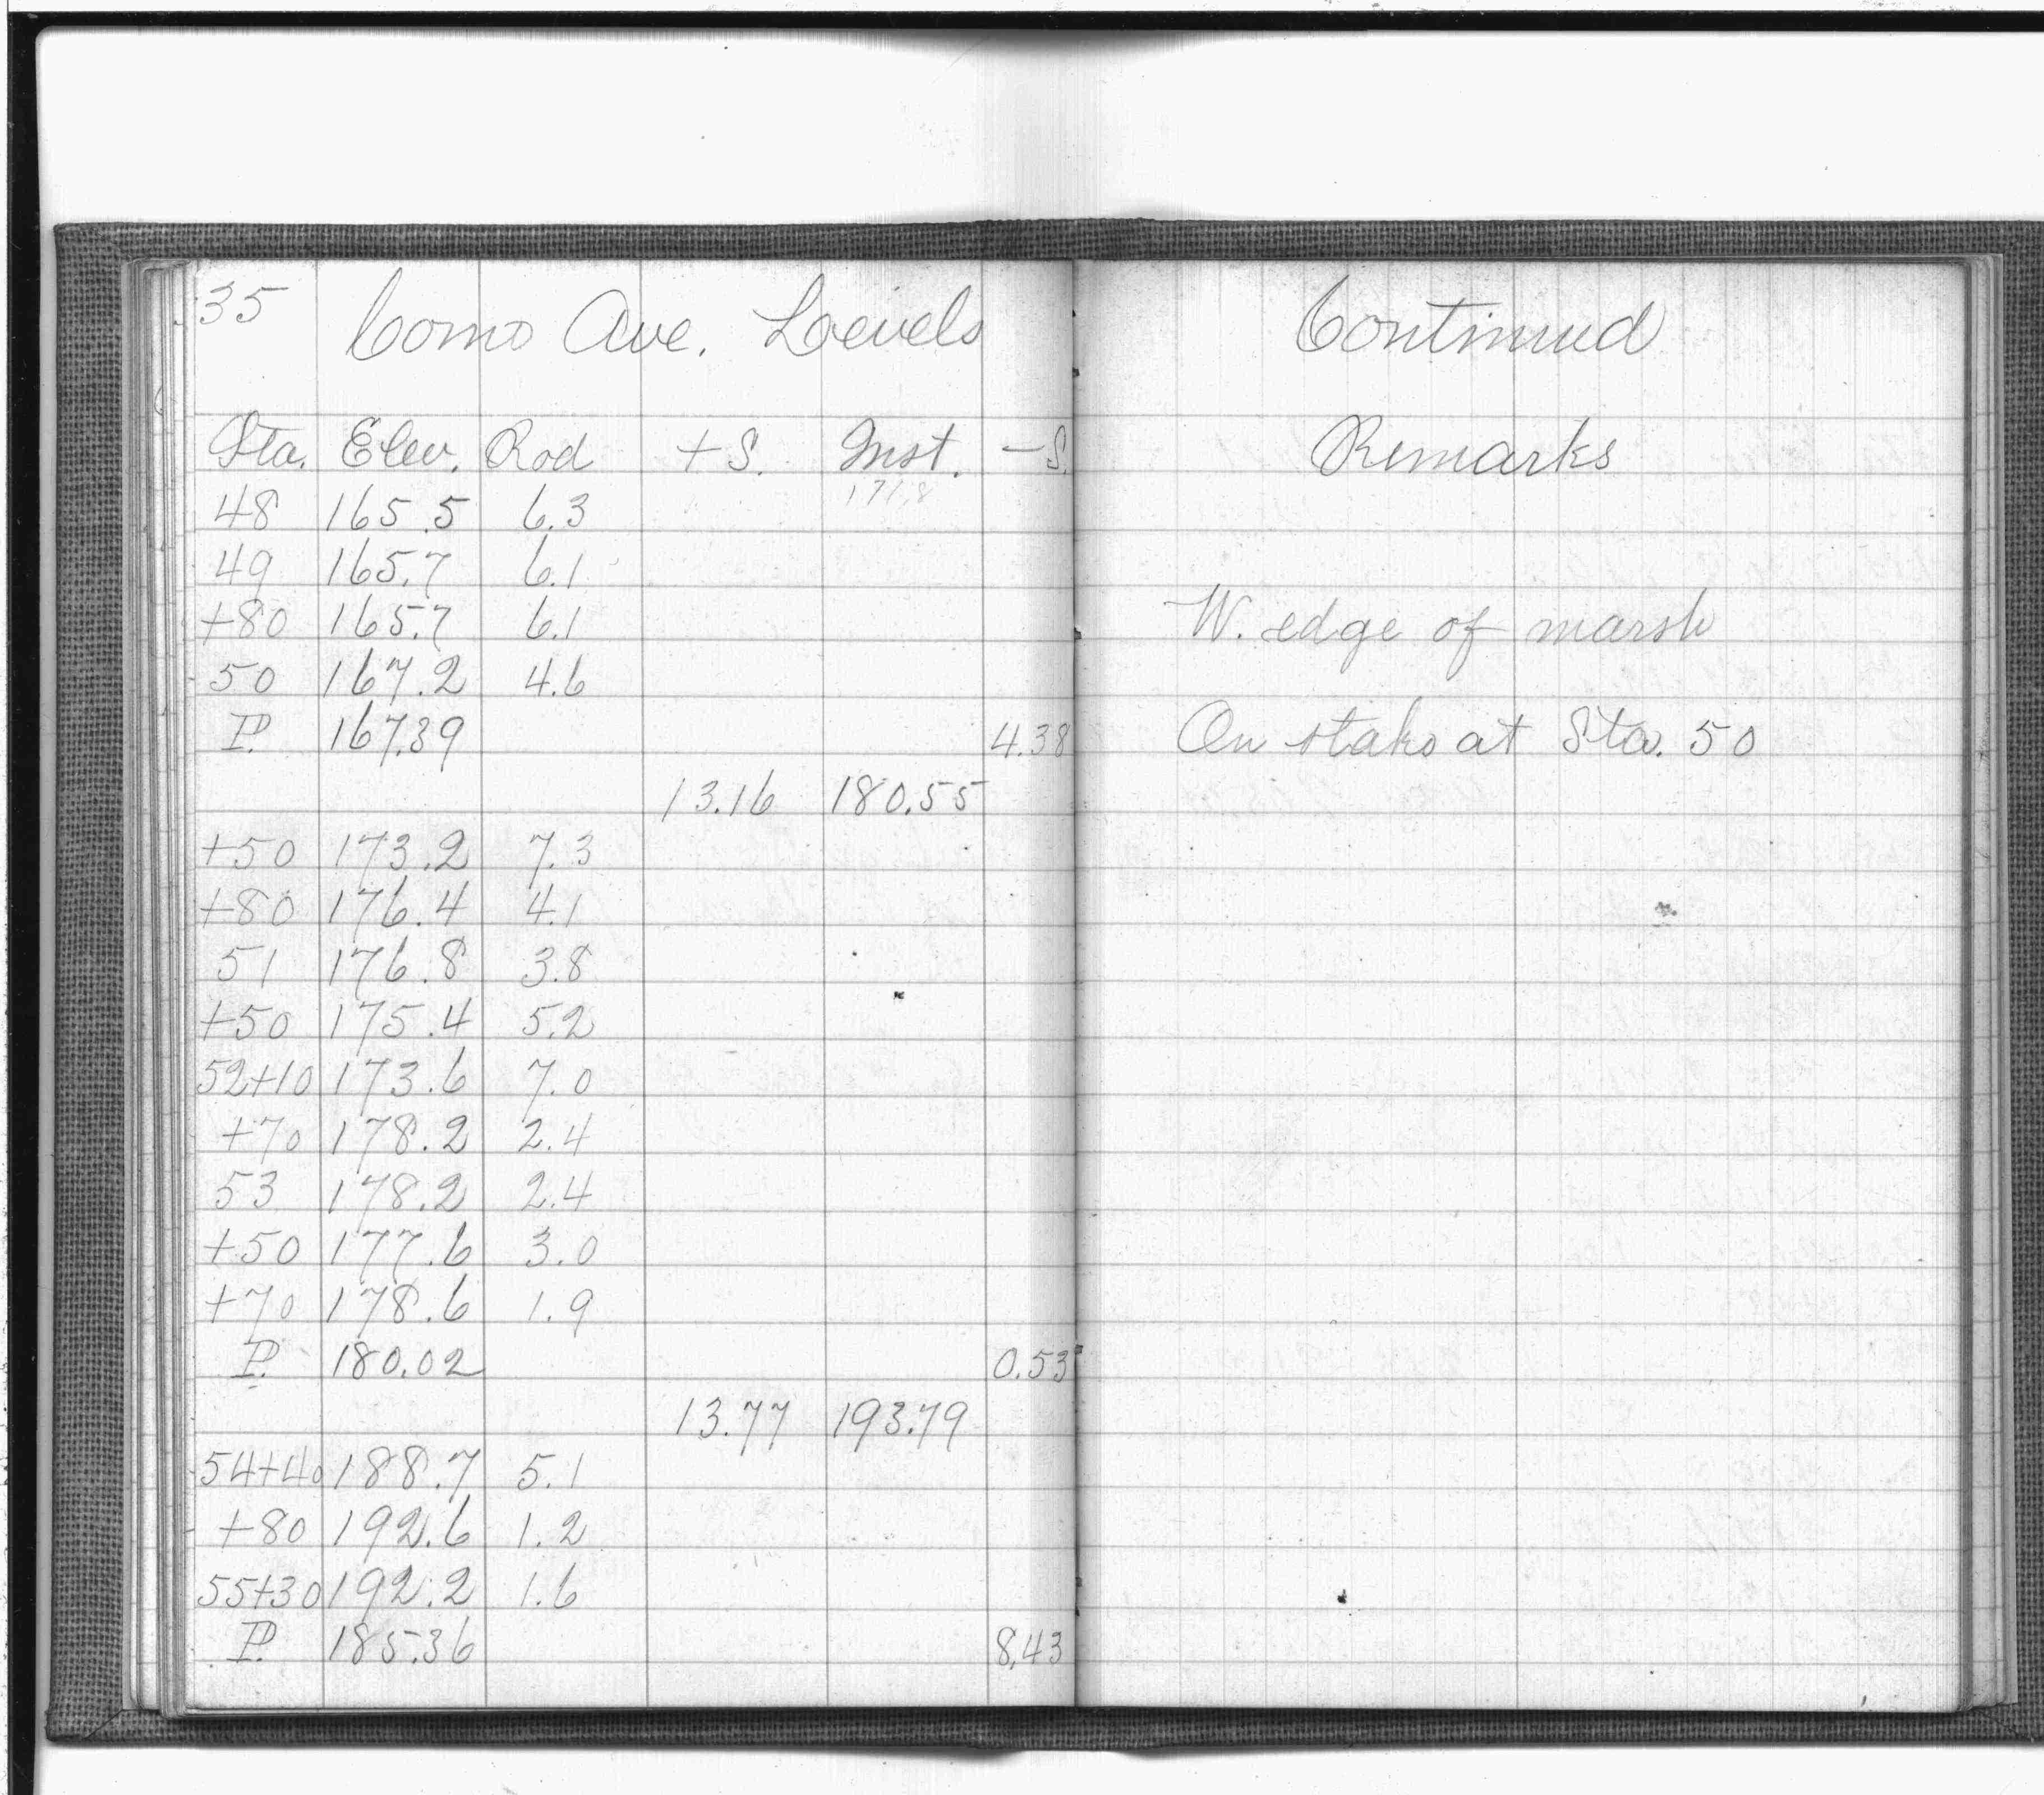 35 Como Ave. Levels Continued
Sta. Elev. Rod + S. Inst. - S. Remarks
171.8
48 165.5 6.3
49 165.7 6.1
+80 165.7 6.1 W. edge of marsh
50 167.2 4.6
P. 167.39 4.38 On stake at Sta. 50
13.16 180.55
+50 173.2 7.3
+80 176.4 4.1
51 176.8 3.8
+50 175.4 5.2
52+10 173.6 7.0
+70 178.2 2.4
53 178.2 2.4
+50 177.6 3.0
+70 178.6 1.9
P. 180.02 0.53
13.77 193.79
54+40 188.7 5.1
+80 192.6 1.2
55+30 192.2 1.6
P. 185.36 8.43